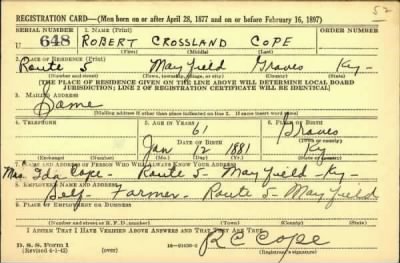 52
REGISTRATION CARD—(Men born on or after April 28, 1877 and on or before February 16, 1897)
SERIAL NUMBER 1. NAME (Print) ORDER NUMBER
U 648 ROBERT CROSSLAND COPE
(First) (Middle) (Last)
2. PLACE OF RESIDENCE (Print)
Route 5 Mayfield Graves Ky-
(Number and street) (Town, township, village, or city) (County) (State)
[THE PLACE OF RESIDENCE GIVEN ON THE LINE ABOVE WILL DETERMINE LOCAL BOARD
JURISDICTION; LINE 2 OF REGISTRATION CERTIFICATE WILL BE IDENTICAL]
3. MAILING ADDRESS
Same
[Mailing address if other than place indicated on line 2. If same insert word same]
4. TELEPHONE 5. AGE IN YEARS 6. PLACE OF BIRTH
61 Graves
DATE OF BIRTH (Town or county)
Jan 12 1881 Ky
(Exchange) (Number) (Mo.) (Day) (Yr.) (State or country)
7. NAME AND ADDRESS OF PERSON WHO WILL ALWAYS KNOW YOUR ADDRESS
Mrs Ida Cope - Route 5 - Mayfield - Ky-
8. EMPLOYER'S NAME AND ADDRESS
Self - Farmer - Route 5 - Mayfield
9. PLACE OF EMPLOYMENT OR BUSINESS
(Number and street or R. F. D. number) (Town) (County) (State)
I AFFIRM THAT I HAVE VERIFIED ABOVE ANSWERS AND THAT THEY ARE TRUE.
R C Cope
D. S. S. Form 1
(Revised 4-1-42) (Registrant's signature)